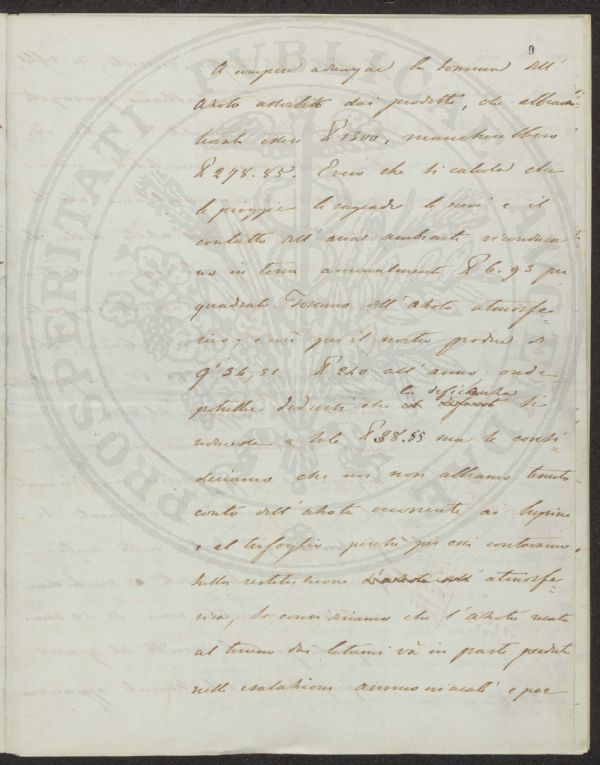 9
A compier adunque la somma dell'
Azoto assorbito dai prodotti, che abbiam
trovati essere ℔ 1500, mancherebbero
℔ 278.85. Ermo che si calcola che
le pioggie le rugiade le nevi e il
contatto dell'aria ambiente riconduca
no in terra annualmente ℔ 6.93 per
quadrato Toscano dell'Azoto atmosfe
rico; e così per il nostro podere di
q.i 34,51 ℔ 240 all'anno. onde
potrebbe dedursi che la deficienza si
riducesse a sole ℔ 38.55 ma se consi
deriamo che noi non abbiamo tenuto
conto dell'azoto occorrente ai lupini
e al trifoglio perchè per essi contavamo
sulla restituzione atmosfe
rica, se consideriamo che l'azoto recato
al terreno dai letami và in parte perduto
nelle esalazioni ammoniacali e per
PROSPERITATI PUBLICAE AUGENDAE